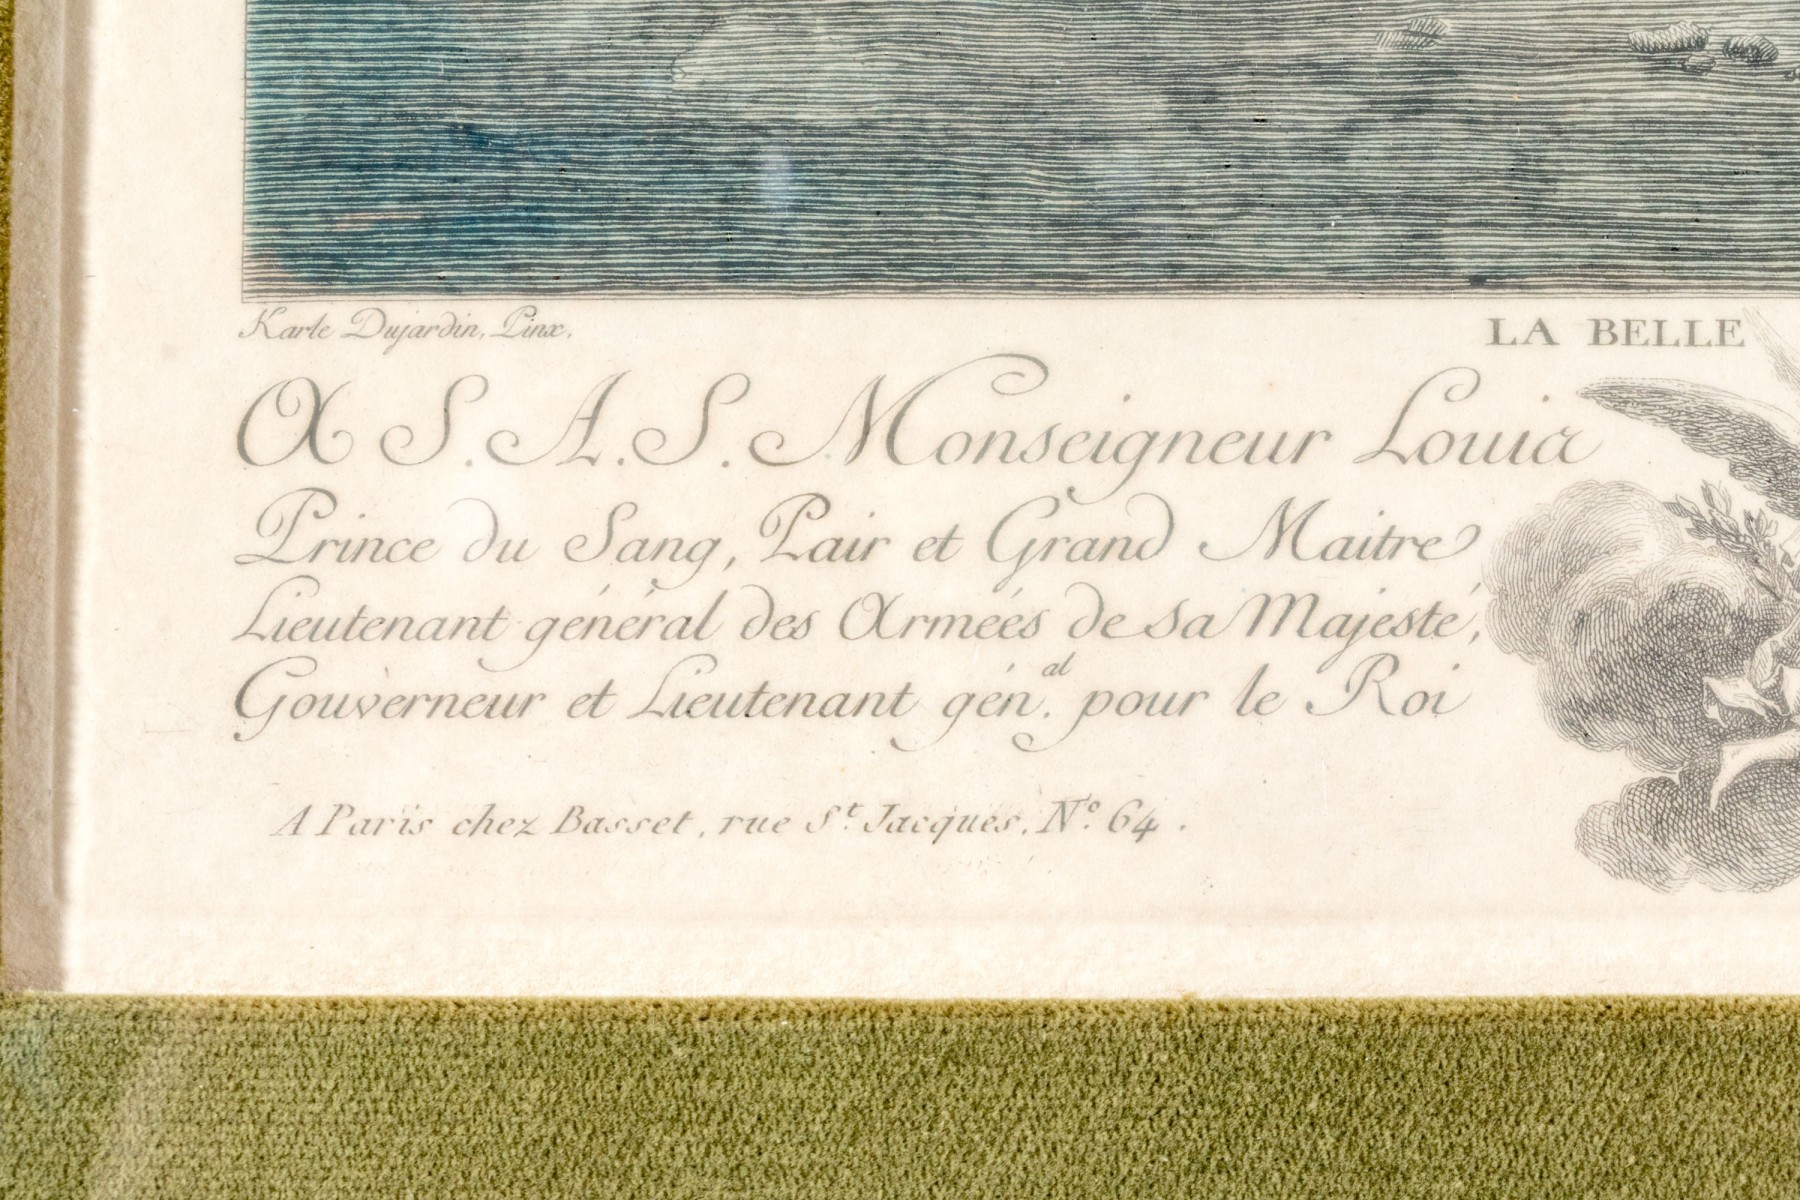 Karle Dujardin, Pinx.
LA BELLE
A S. A. S. Monseigneur Louis
Prince du Sang, Pair et Grand Maitre
Lieutenant général des Armées de sa Majesté,
Gouverneur et Lieutenant gén.al pour le Roi
A Paris chez Basset, rue St. Jacques, No. 64.